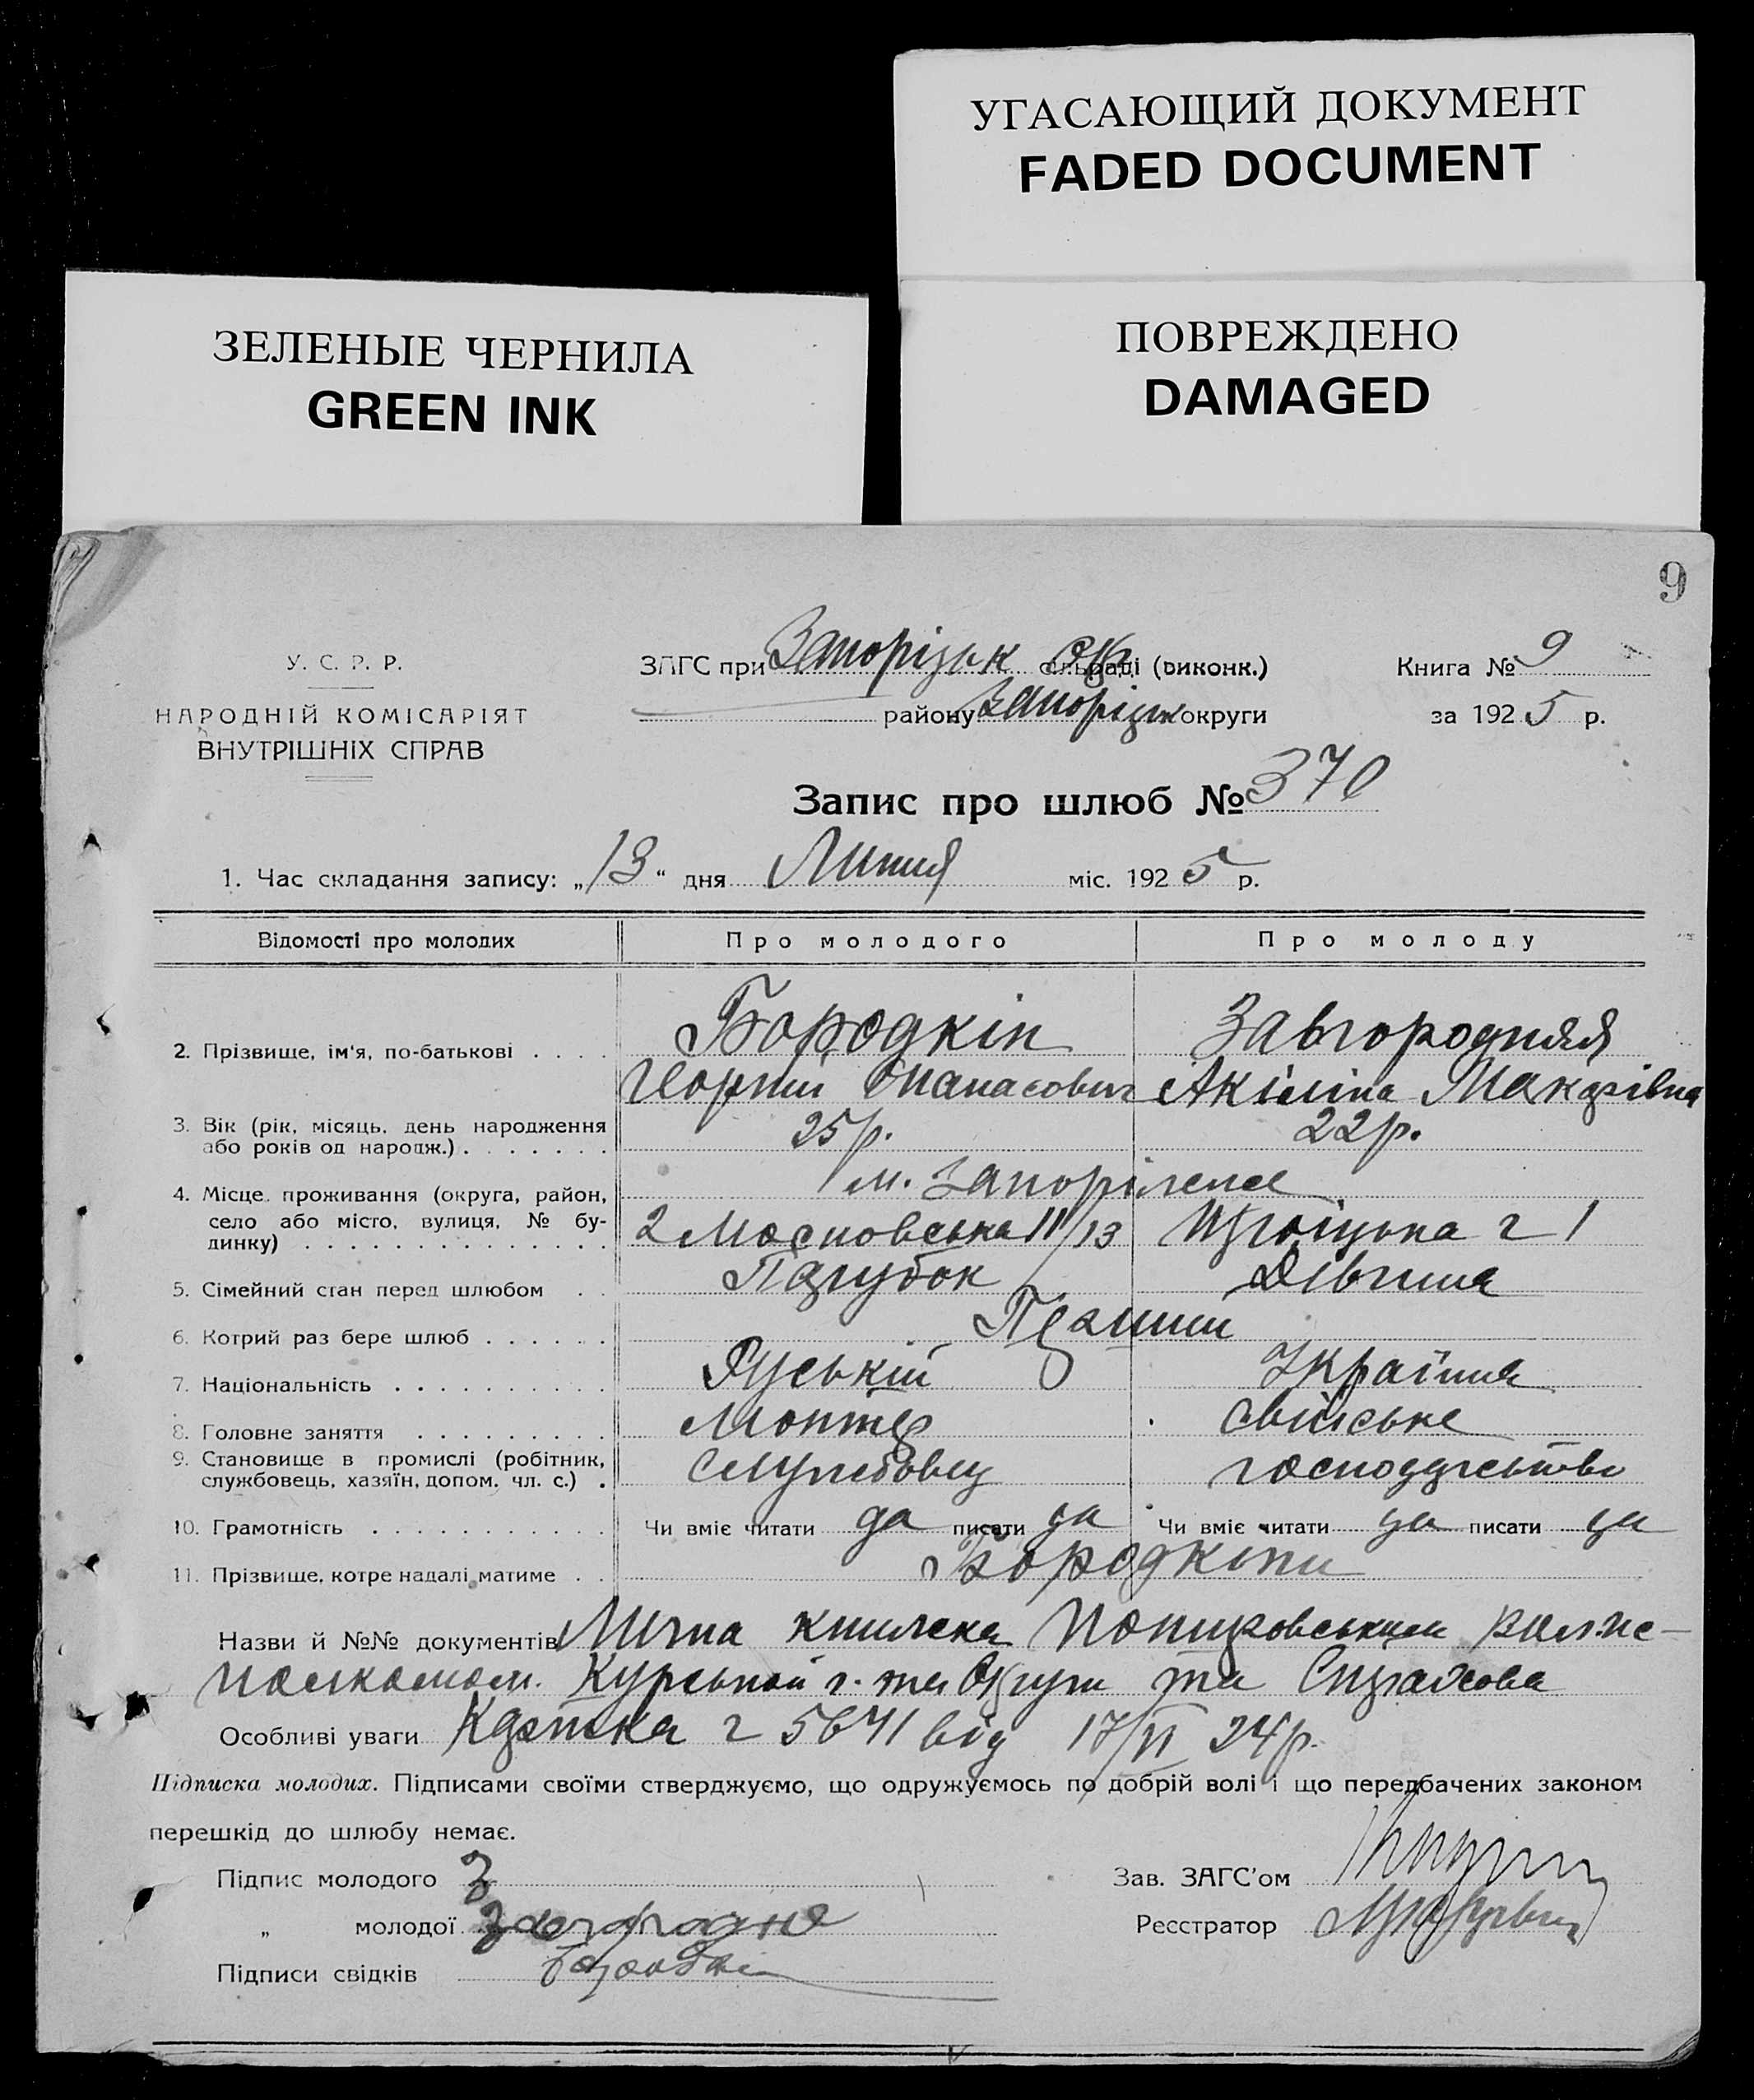 УГАСАЮЩИЙ ДОКУМЕНТ
FADED DOCUMENT
ЗЕЛЕНЫЕ ЧЕРНИЛА
GREEN INK
ПОВРЕЖДЕНО
DAMAGED
9
У. С. Р. Р.
НАРОДНІЙ КОМІСАРІЯТ
ВНУТРІШНІХ СПРАВ
ЗАГС при Запорізьк окр. сільраді (виконк.)
району Запорізьк округи
Книга № 9
за 1925 р.
Запис про шлюб № 370
1. Час складання запису: „13“ дня Липня міс. 1925 р.
Відомості про молодих Про молодого Про молоду
2. Прізвище, ім'я, по-батькові . . . . Бородкін Завгородняя
Георгий Опанасович Акіліна Макарівна
3. Вік (рік, місяць, день народження
або років од народж.) . . . . . . . 25р. 22р.
4. Місце проживання (округа, район, м. Запоріжжє
село або місто, вулиця, № бу-
динку) . . . . . . . . . . . . . . 2 Московська 11/13 Троіцька ч 1
5. Сімейний стан перед шлюбом . . Парубок Дівчина
6. Котрий раз бере шлюб . . . . . . Перший
7. Національність . . . . . . . . . . Руській Україна
8. Головне заняття . . . . . . . . . Монтер свійське
9. Становище в промислі (робітник,
службовець, хазяїн, допом. чл. с.) . Службовец господарство
10. Грамотність . . . . . . . . . . . Чи вміє читати да писати да Чи вміє читати да писати да
11. Прізвище, котре надалі матиме . . Бородкіни
Назви й №№ документів Лична книжка
Курській г. та Страхова
Особливі уваги Картка ч 5641 від 17/VI 24р.
Підписка молодих. Підписами своїми стверджуємо, що одружуємось по добрій волі і що передбачених законом
перешкід до шлюбу немає.
Підпис молодого З
„ молодої Завгородне
Підписи свідків
Зав. ЗАГС'ом
Реєстратор